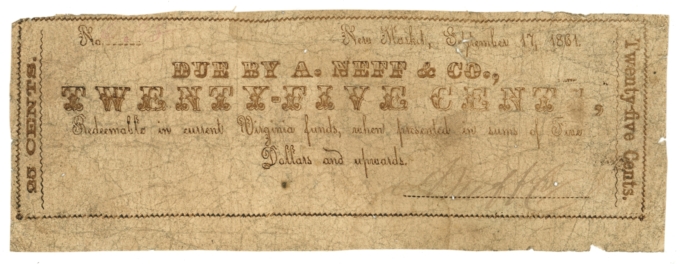 25 CENTS.
No.
New Market, September 17, 1861.
DUE BY A. NEFF & CO.,
TWENTY-FIVE CENTS,
Redeemable in current Virginia funds, when presented in sums of Five
Dollars and upwards.
Twenty-five Cents.